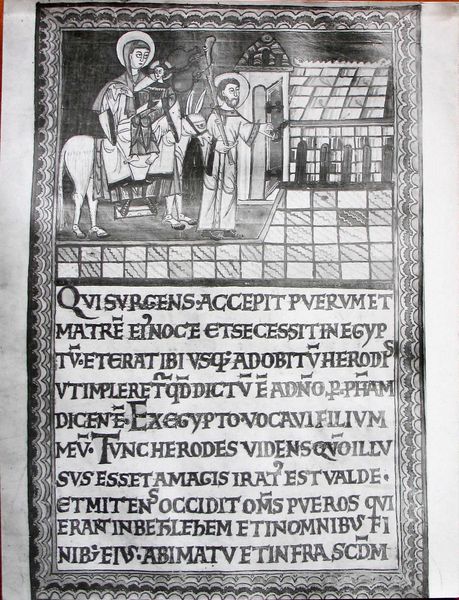 QVI SVRGENS · ACCEPIT PVERVM ET
MATRĒ EI᾽ NOCTE ET SECESSIT IN EGYP
TṼ · ET ERAT IBI VSQ; AD OBITṼ HERODIS
VT IMPLERET᾽ QD̄ DICTṼ Ē A DÑO · P̱ PH̄AM
DICENTĒ · EX EGYPTO · VOCAVI FILIVM
MEṼ · TVNC HERODES VIDENS QM̄ ILLV
SVS ESSET A MAGIS IRAT᾽ EST VALDE ·
ET MITTENS OCCIDIT OMS̄ PVEROS QVI
ERANT IN BETHLEHEM ET IN OMNIBVS FI
NIB; EIVS · A BIMATV ET INFRA SCD̄M